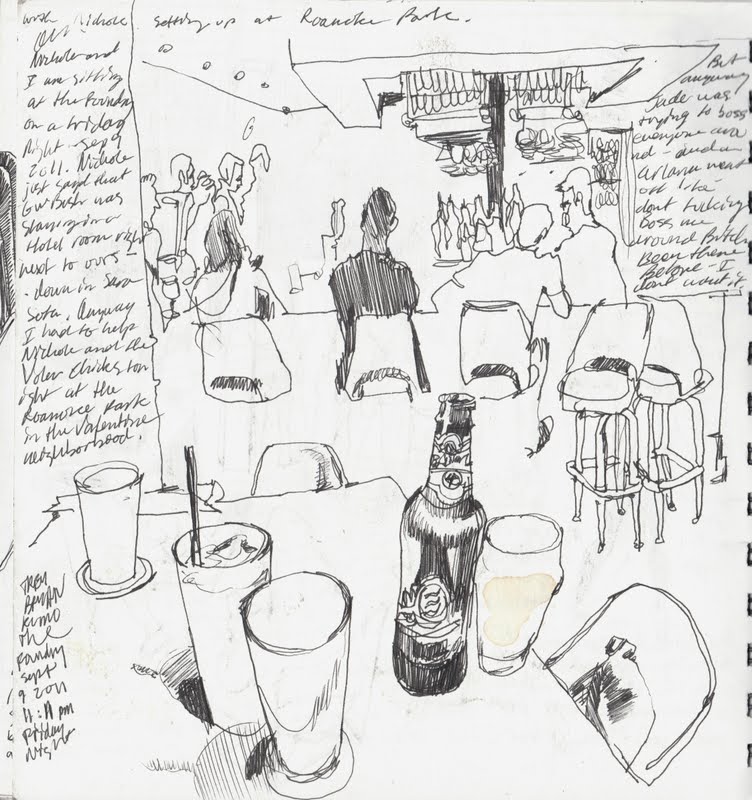 with
Nichole setting up at Roanoke Park.
Nichole and
I are sitting
at the Foundry
on a Friday
Night - Sep 9
2011. Nichole
just said that
GW Bush was
staying in a
Hotel room right
next to ours -
- down in Sara
sota. Anyway
I had to help
Nichole and the
Voler chicks ton
ight at the
Roanoke Park
in the Valentine
neighborhood.
But
anyway
Jade was
trying to boss
everyone arou
nd - and
Arlana went
off like
dont fucking
Boss me
around Bitch
Been there
Before - I
dont want it
G
TREY
BRYAN
KIMO
the
Foundry
Sept
9 2011
11:11 pm
Friday
Night